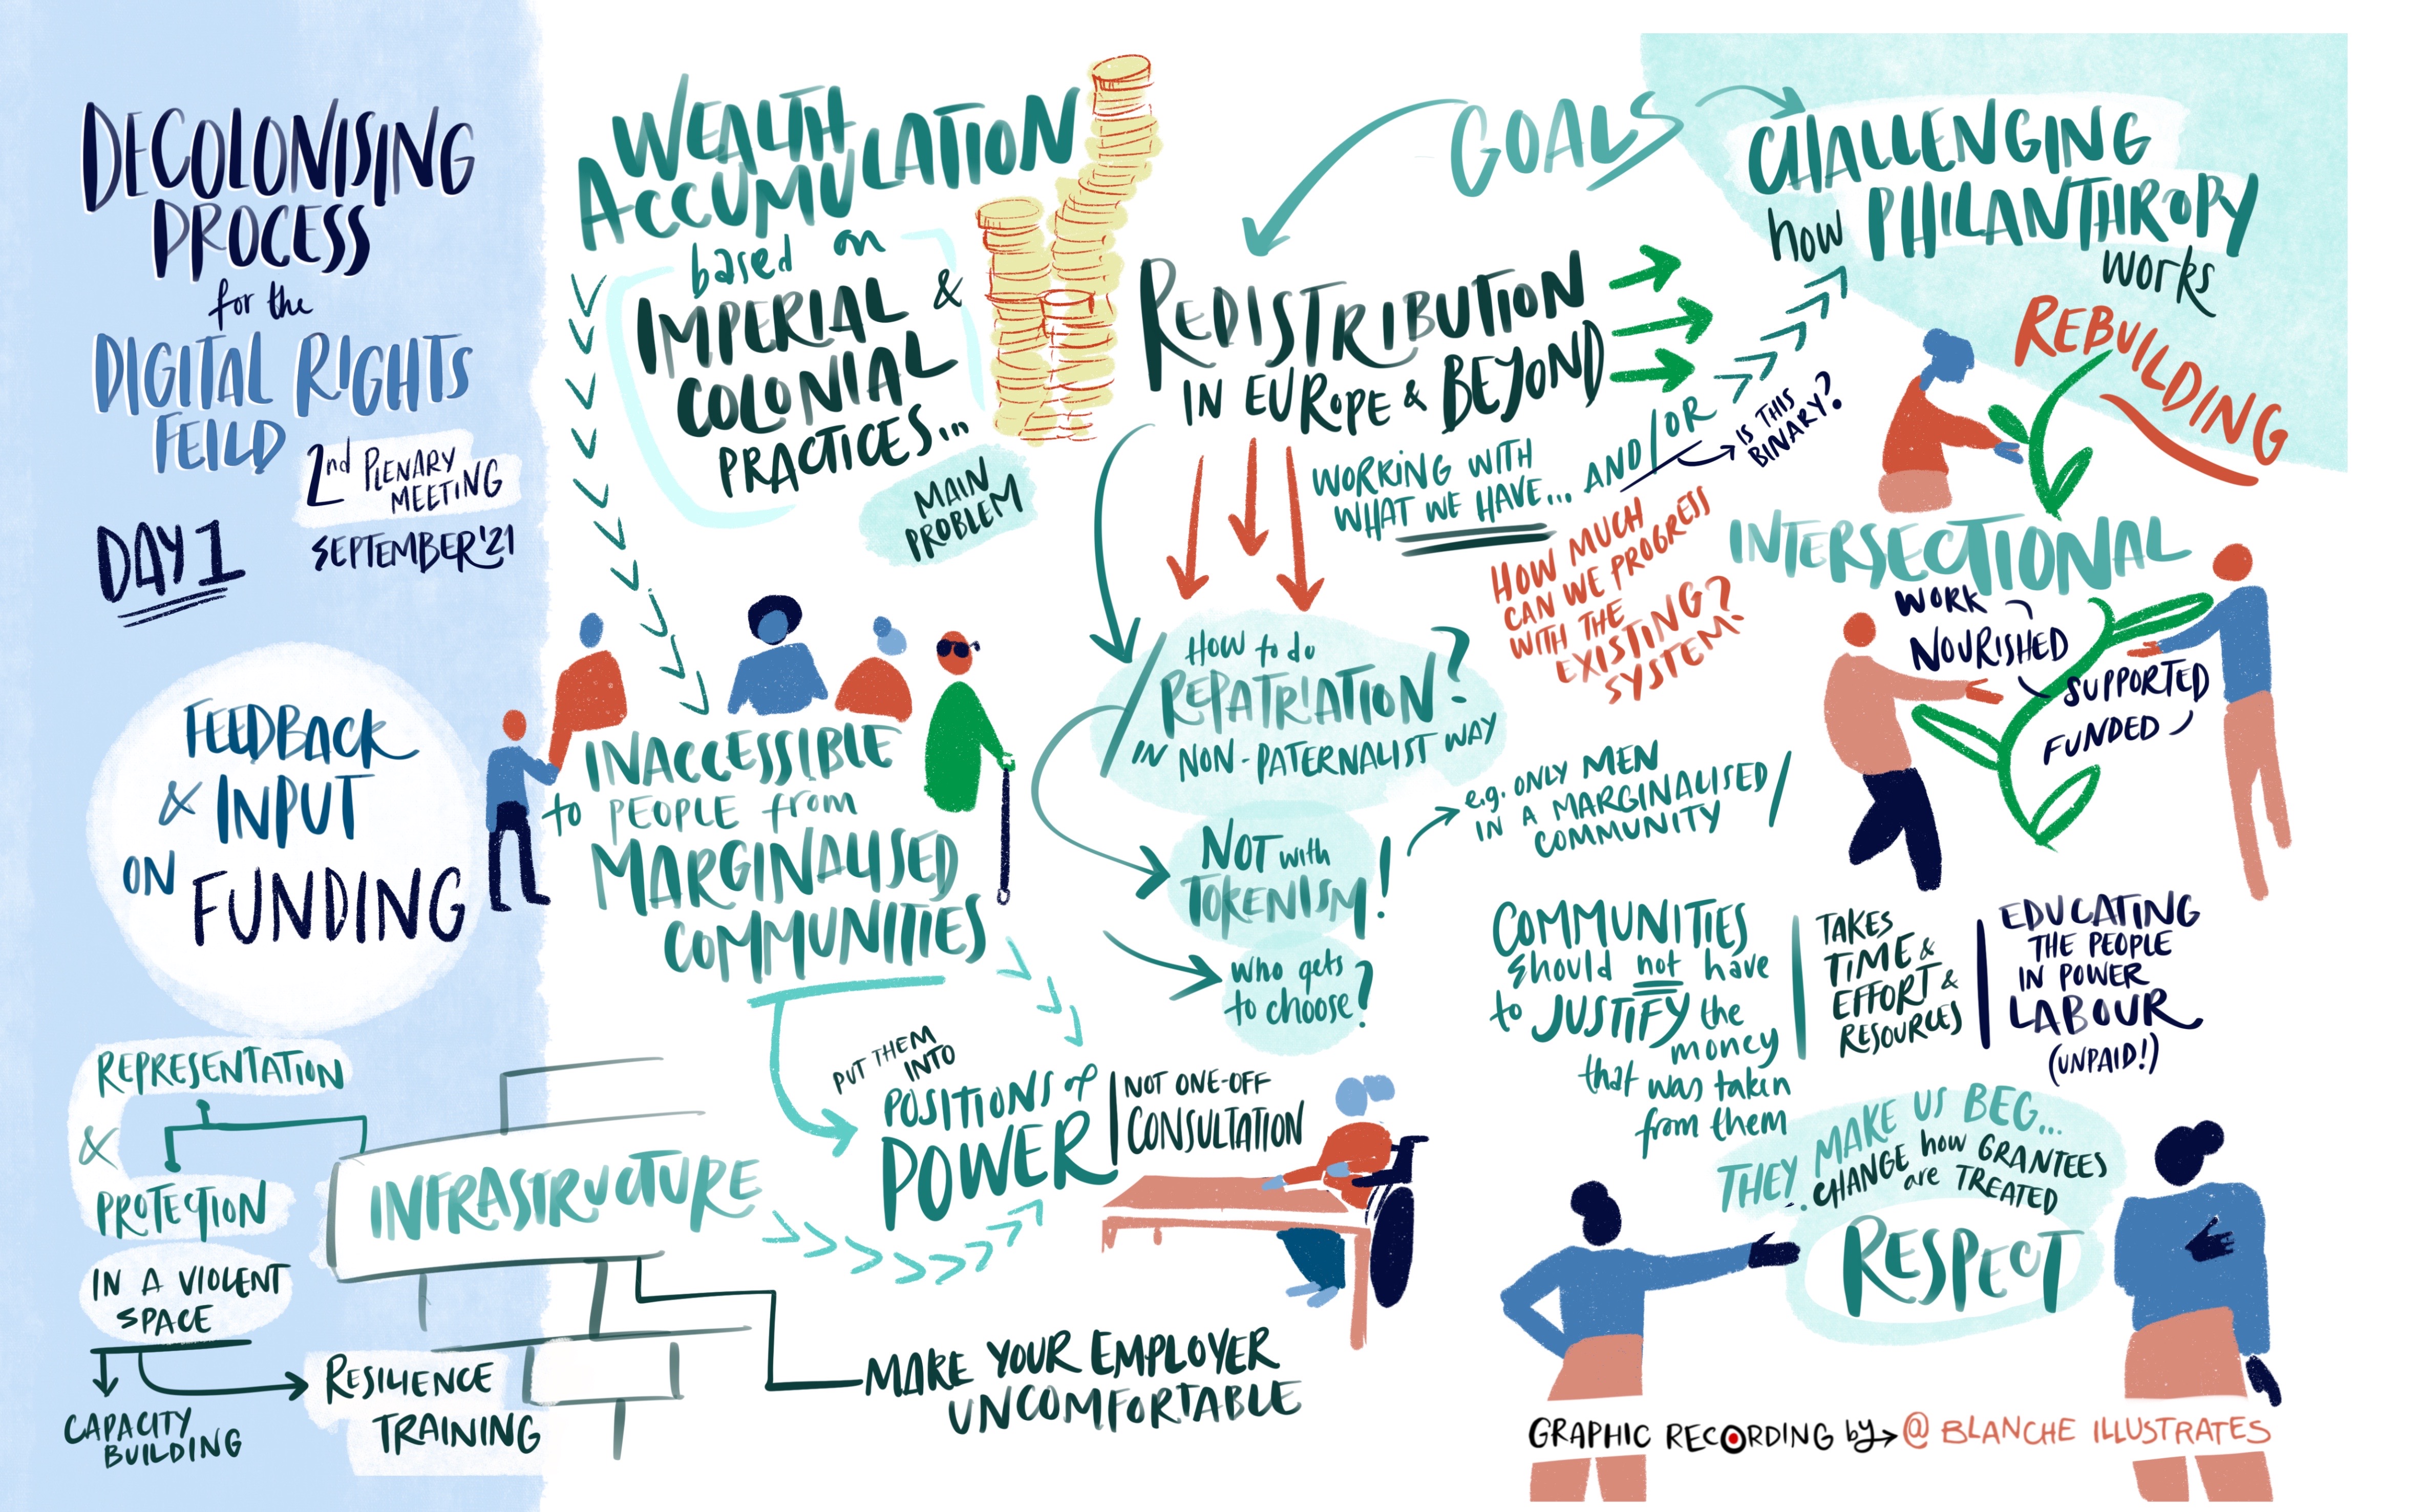 DECOLONISING
PROCESS
for the
DIGITAL RIGHTS
FEILD
2nd PLENARY
MEETING
DAY 1
SEPTEMBER '21
FEEDBACK
& INPUT
ON FUNDING
REPRESENTATION
&
PROTECTION
IN A VIOLENT
SPACE
CAPACITY
BUILDING
RESILIENCE
TRAINING
INFRASTRUCTURE
MAKE YOUR EMPLOYER
UNCOMFORTABLE
WEALTH
ACCUMULATION
based on
IMPERIAL &
COLONIAL
PRACTICES...
MAIN
PROBLEM
INACCESSIBLE
to PEOPLE from
MARGINALISED
COMMUNITIES
PUT THEM
INTO
POSITIONS of
POWER
NOT ONE-OFF
CONSULTATION
GOALS
REDISTRIBUTION
IN EUROPE & BEYOND
WORKING WITH
WHAT WE HAVE... AND/OR
IS THIS
BINARY?
HOW MUCH
CAN WE PROGRESS
WITH THE
EXISTING?
SYSTEM.
HOW to do
REPATRIATION?
IN NON-PATERNALIST WAY
NOT with
TOKENISM!
e.g. ONLY MEN
IN A MARGINALISED
COMMUNITY
who gets
to choose?
CHALLENGING
how PHILANTHROPY
works
REBUILDING
INTERSECTIONAL
WORK
NOURISHED
SUPPORTED
FUNDED
COMMUNITIES
should not have
to JUSTIFY the
money
that was taken
from them
TAKES
TIME &
EFFORT &
RESOURCES
EDUCATING
THE PEOPLE
IN POWER
LABOUR
(UNPAID!)
THEY MAKE US BEG...
CHANGE how GRANTEES
are TREATED
RESPECT
GRAPHIC RECORDING by → @ BLANCHE ILLUSTRATES